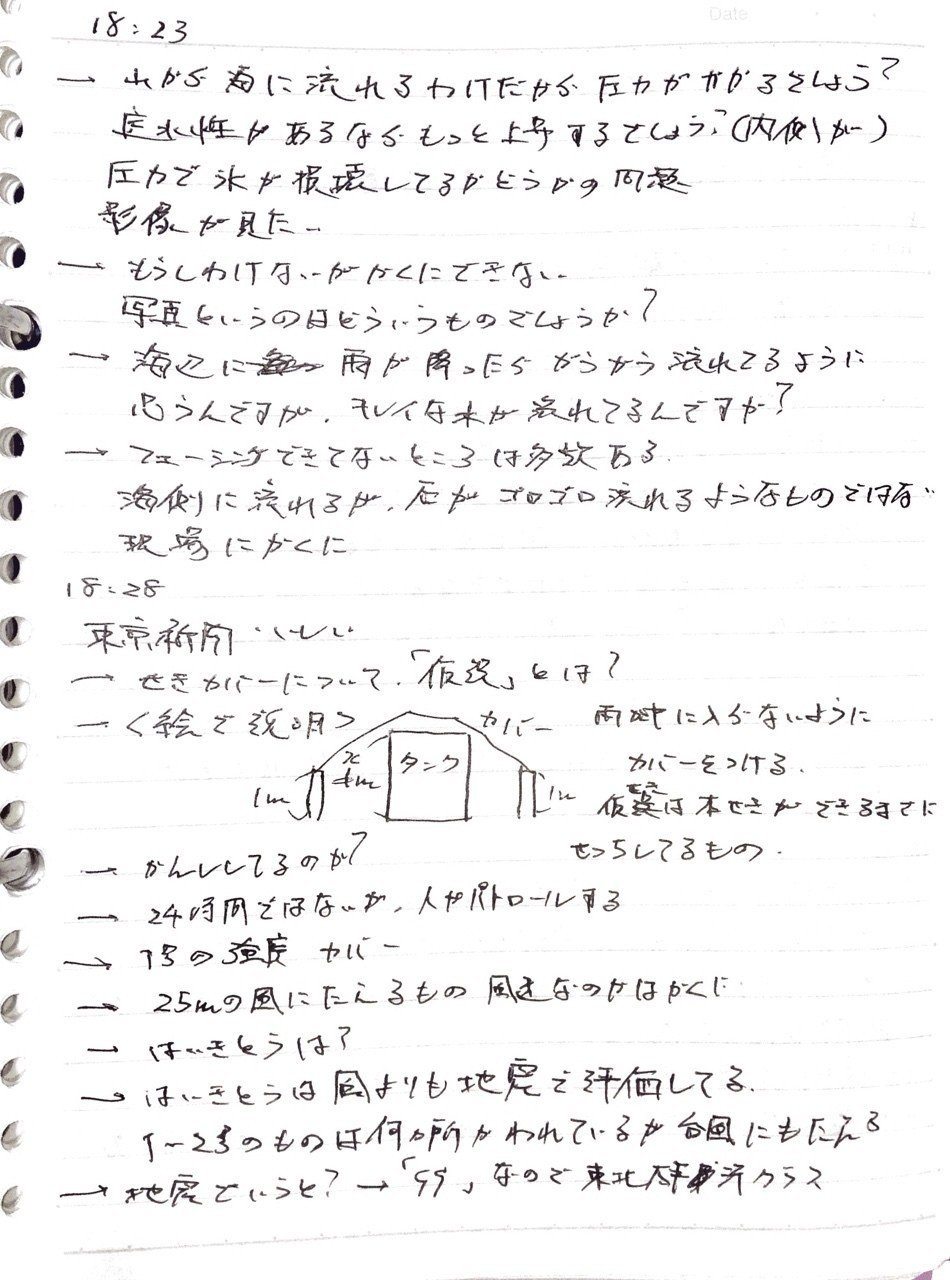 Date
18:23
→ 山から海に流れるわけだから圧力がかかるでしょう?
透水性があるならもっと上昇するでしょう?(内側がー)
圧力で氷が損壊してるかどうかの問題
影像が見た〜
→ もうしわけないがかくにできない
写真というのはどういうものでしょうか?
→ 海辺に 雨が降ったらがらがら流れてるように
思うんですが、キレイな水が流れてるんですか?
→ フェーシングできてないところは多数ある
海側に流れるが、石がゴロゴロ流れるようなものではない
現場にかくに
18:28
東京新聞
→ せきカバーについて、「仮設」とは?
→ <絵で説明>
カバー
タンク
1m
1m
雨が中に入らないように
カバーをつける.
仮せきは本せきができるまでに
せっちしてるもの.
→ かんしてるのか?
→ 24時間ではないが、人がパトロールする
→ の強度 カバー
→ 25mの風にたえるもの 風速なのかはかくに
→ はいきとうは?
→ はいきとうは風よりも地震で評価してる.
1~2号のものは何か所かわれているが台風にもたえる
→ 地震でいうと? → 「SS」なので東北太平洋クラス